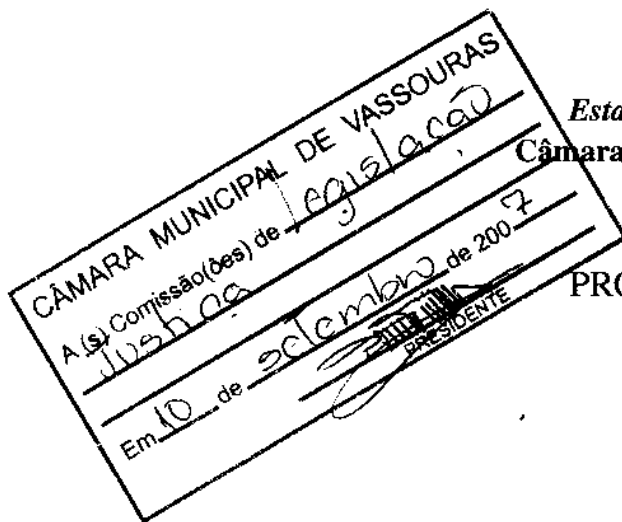 CÂMARA MUNICIPAL DE VASSOURAS
A (s) Comissão(ões) de legislação
Justiça
Em 10 de setembro de 2007
PRESIDENTE
Esta
Câmara
PRO